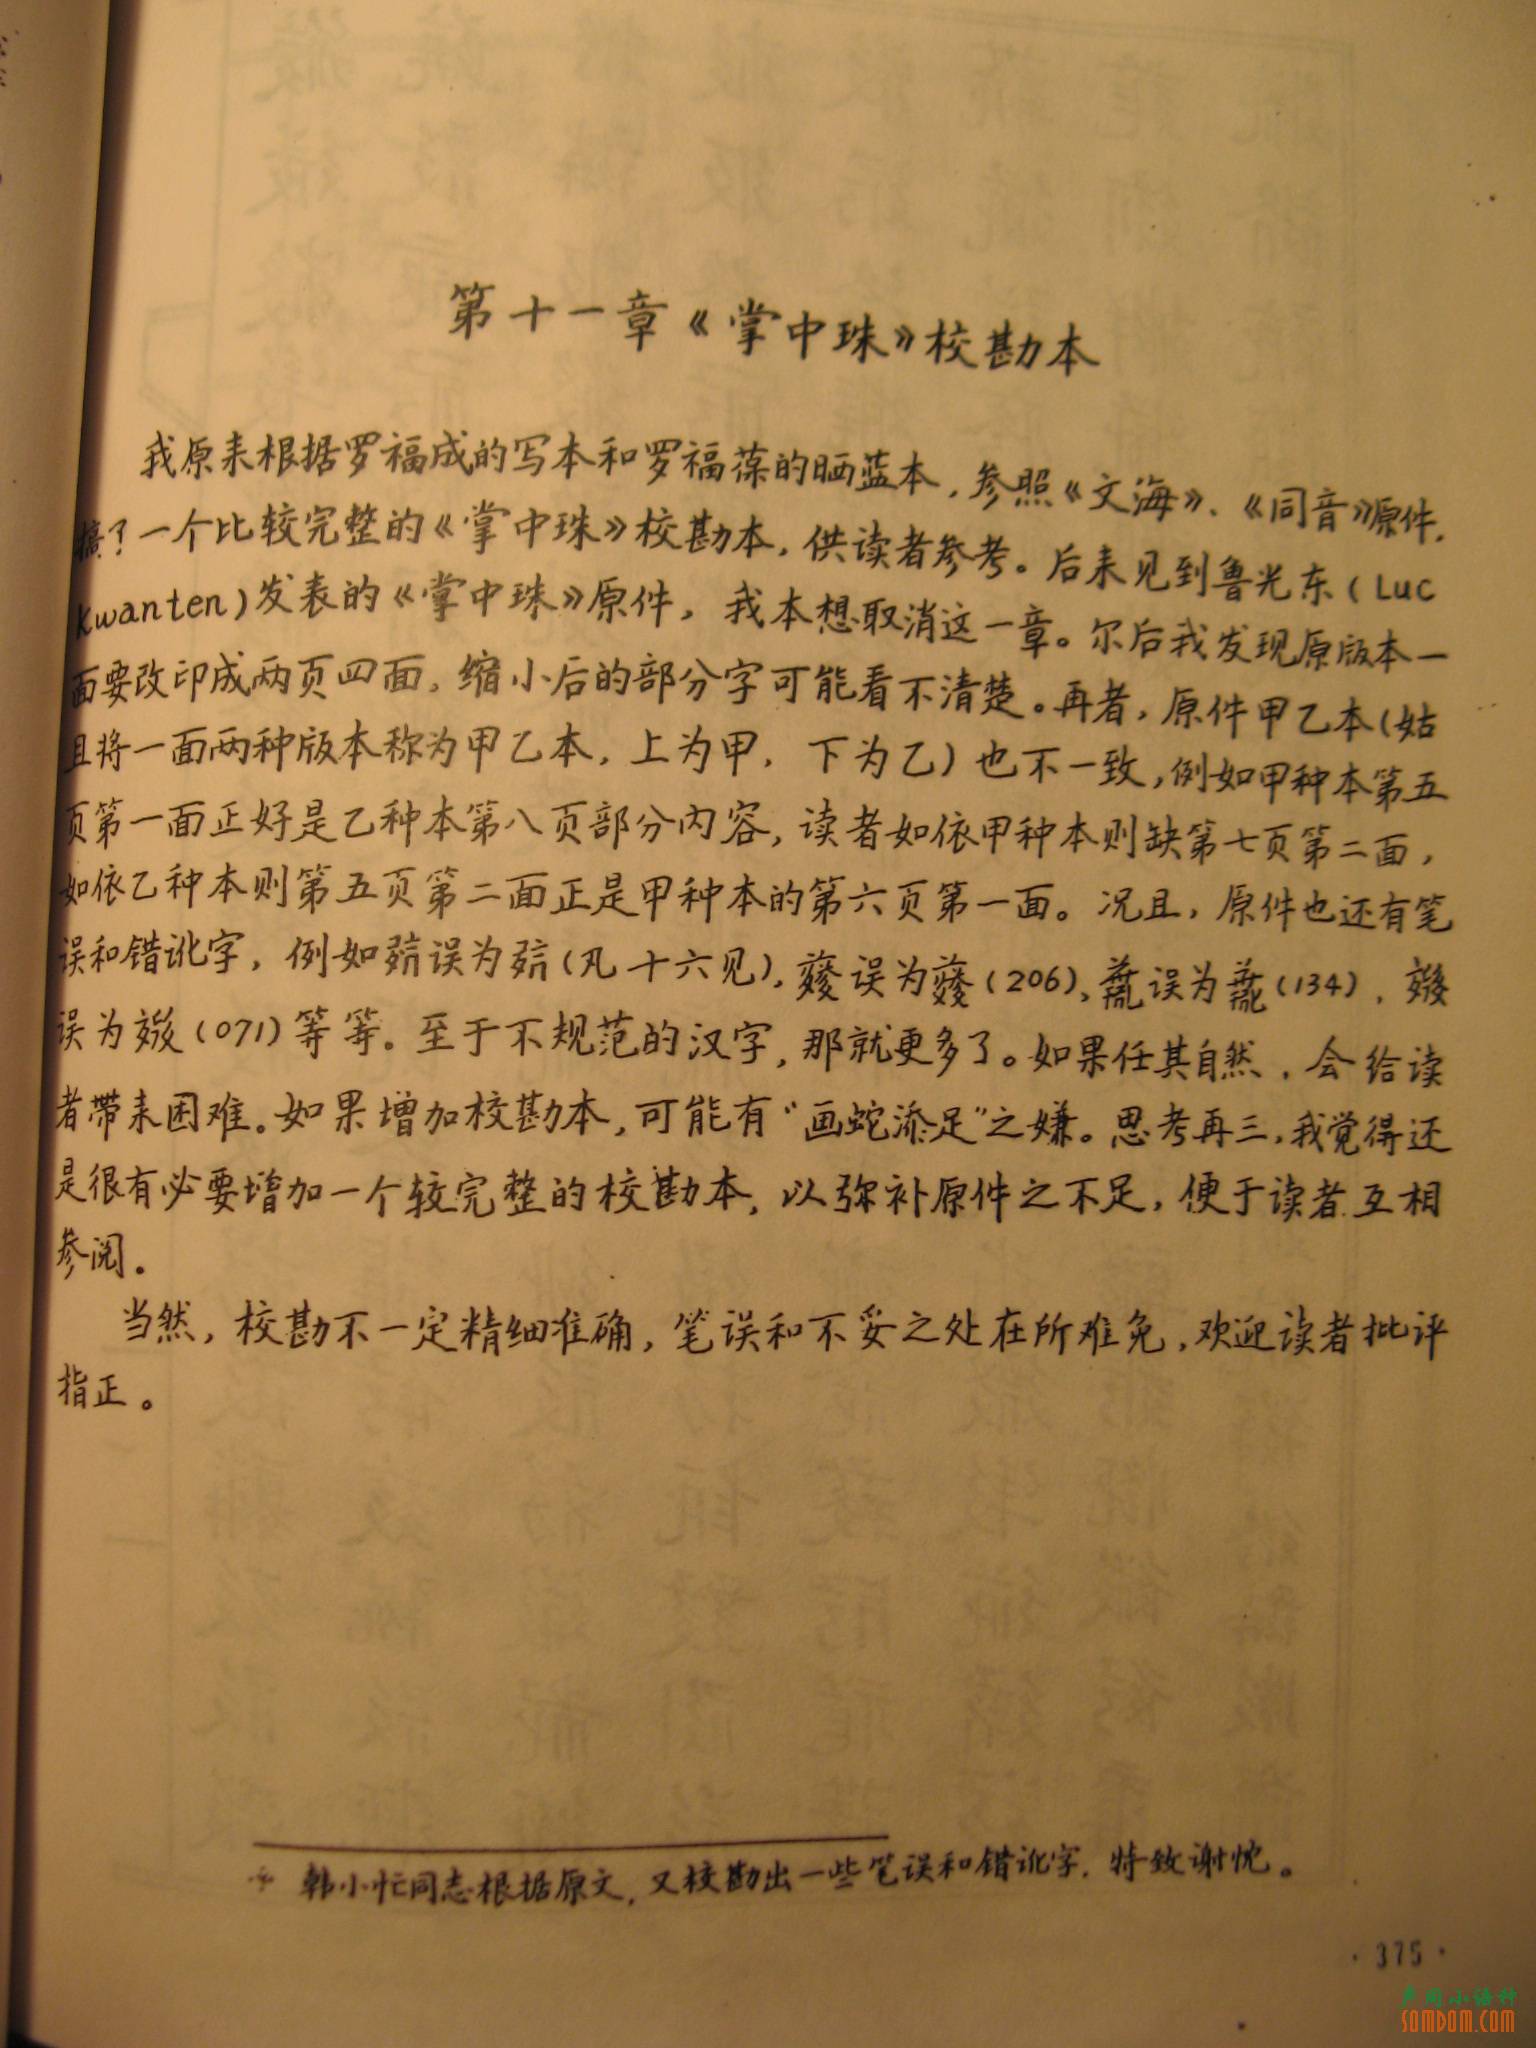 第十一章《掌中珠》校勘本
我原来根据罗福成的写本和罗福葆的晒蓝本，参照《文海》、《同音》原件，
搞了一个比较完整的《掌中珠》校勘本，供读者参考。后来见到鲁光东(Luc
Kwanten)发表的《掌中珠》原件，我本想取消这一章。尔后我发现原版本一
面要改印成两页四面，缩小后的部分字可能看不清楚。再者，原件甲乙本(姑
且将一面两种版本称为甲乙本，上为甲，下为乙)也不一致，例如甲种本第五
页第一面正好是乙种本第八页部分内容，读者如依甲种本则缺第七页第二面，
如依乙种本则第五页第二面正是甲种本的第六页第一面。况且，原件也还有笔
误和错讹字，例如误为(凡十六见)，误为(206)，误为(134)，
误为(071)等等。至于不规范的汉字，那就更多了。如果任其自然，会给读
者带来困难。如果增加校勘本，可能有“画蛇添足”之嫌。思考再三，我觉得还
是很有必要增加一个较完整的校勘本，以弥补原件之不足，便于读者互相
参阅。
当然，校勘不一定精细准确，笔误和不妥之处在所难免，欢迎读者批评
指正。
* 韩小忙同志根据原文，又校勘出一些笔误和错讹字，特致谢忱。
·375·
声同小语种
SOMDOM.COM